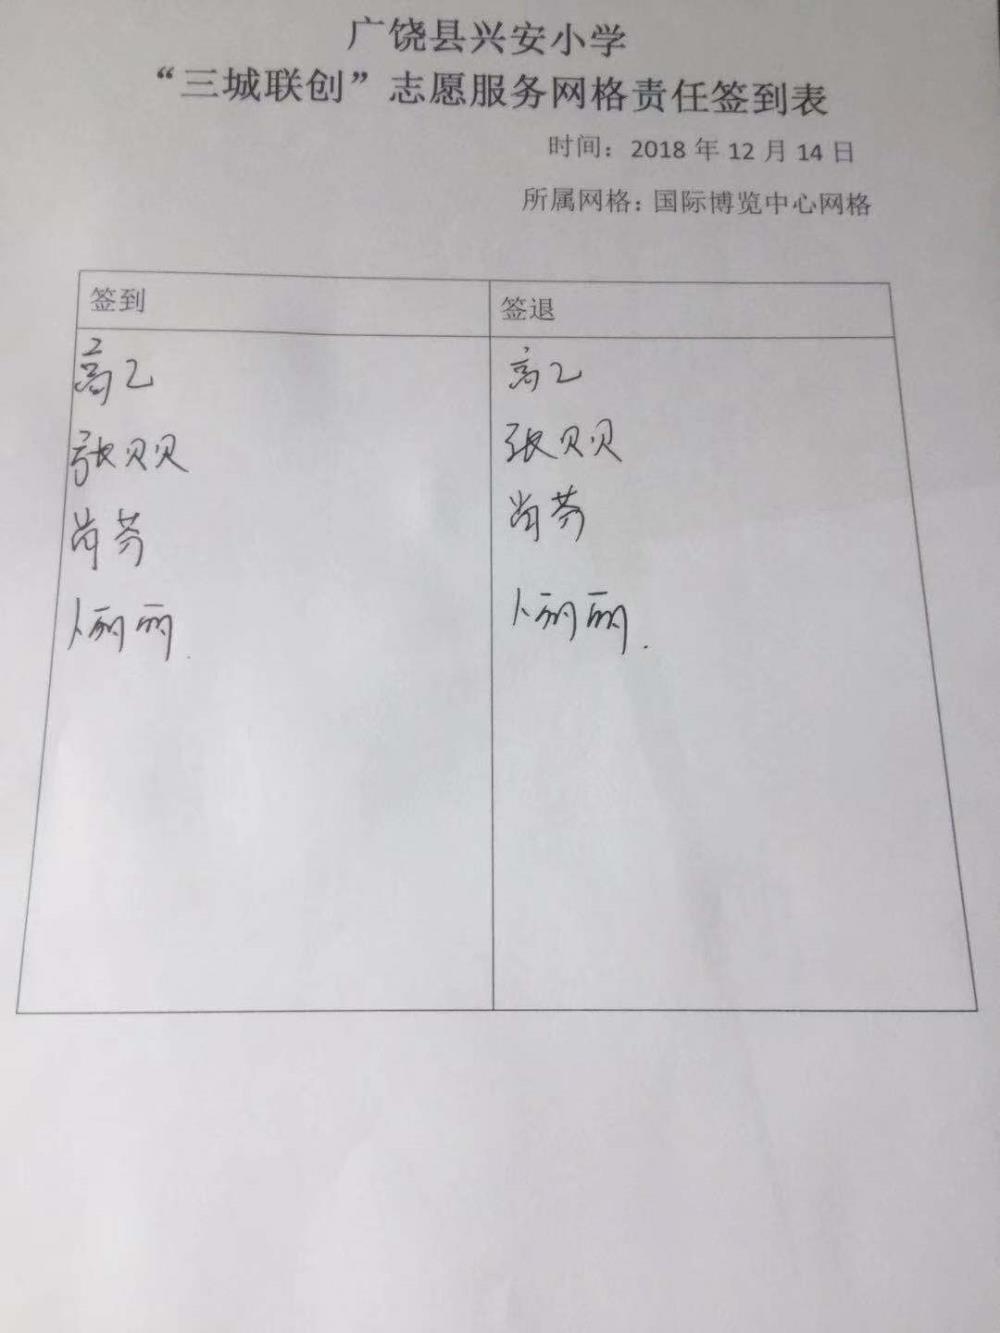 广饶县兴安小学
“三城联创”志愿服务网格责任签到表
时间：2018 年 12 月 14 日
所属网格：国际博览中心网格
签到 签退
高乙 高乙
张贝贝 张贝贝
尚芬 尚芬
卜丽丽. 卜丽丽.